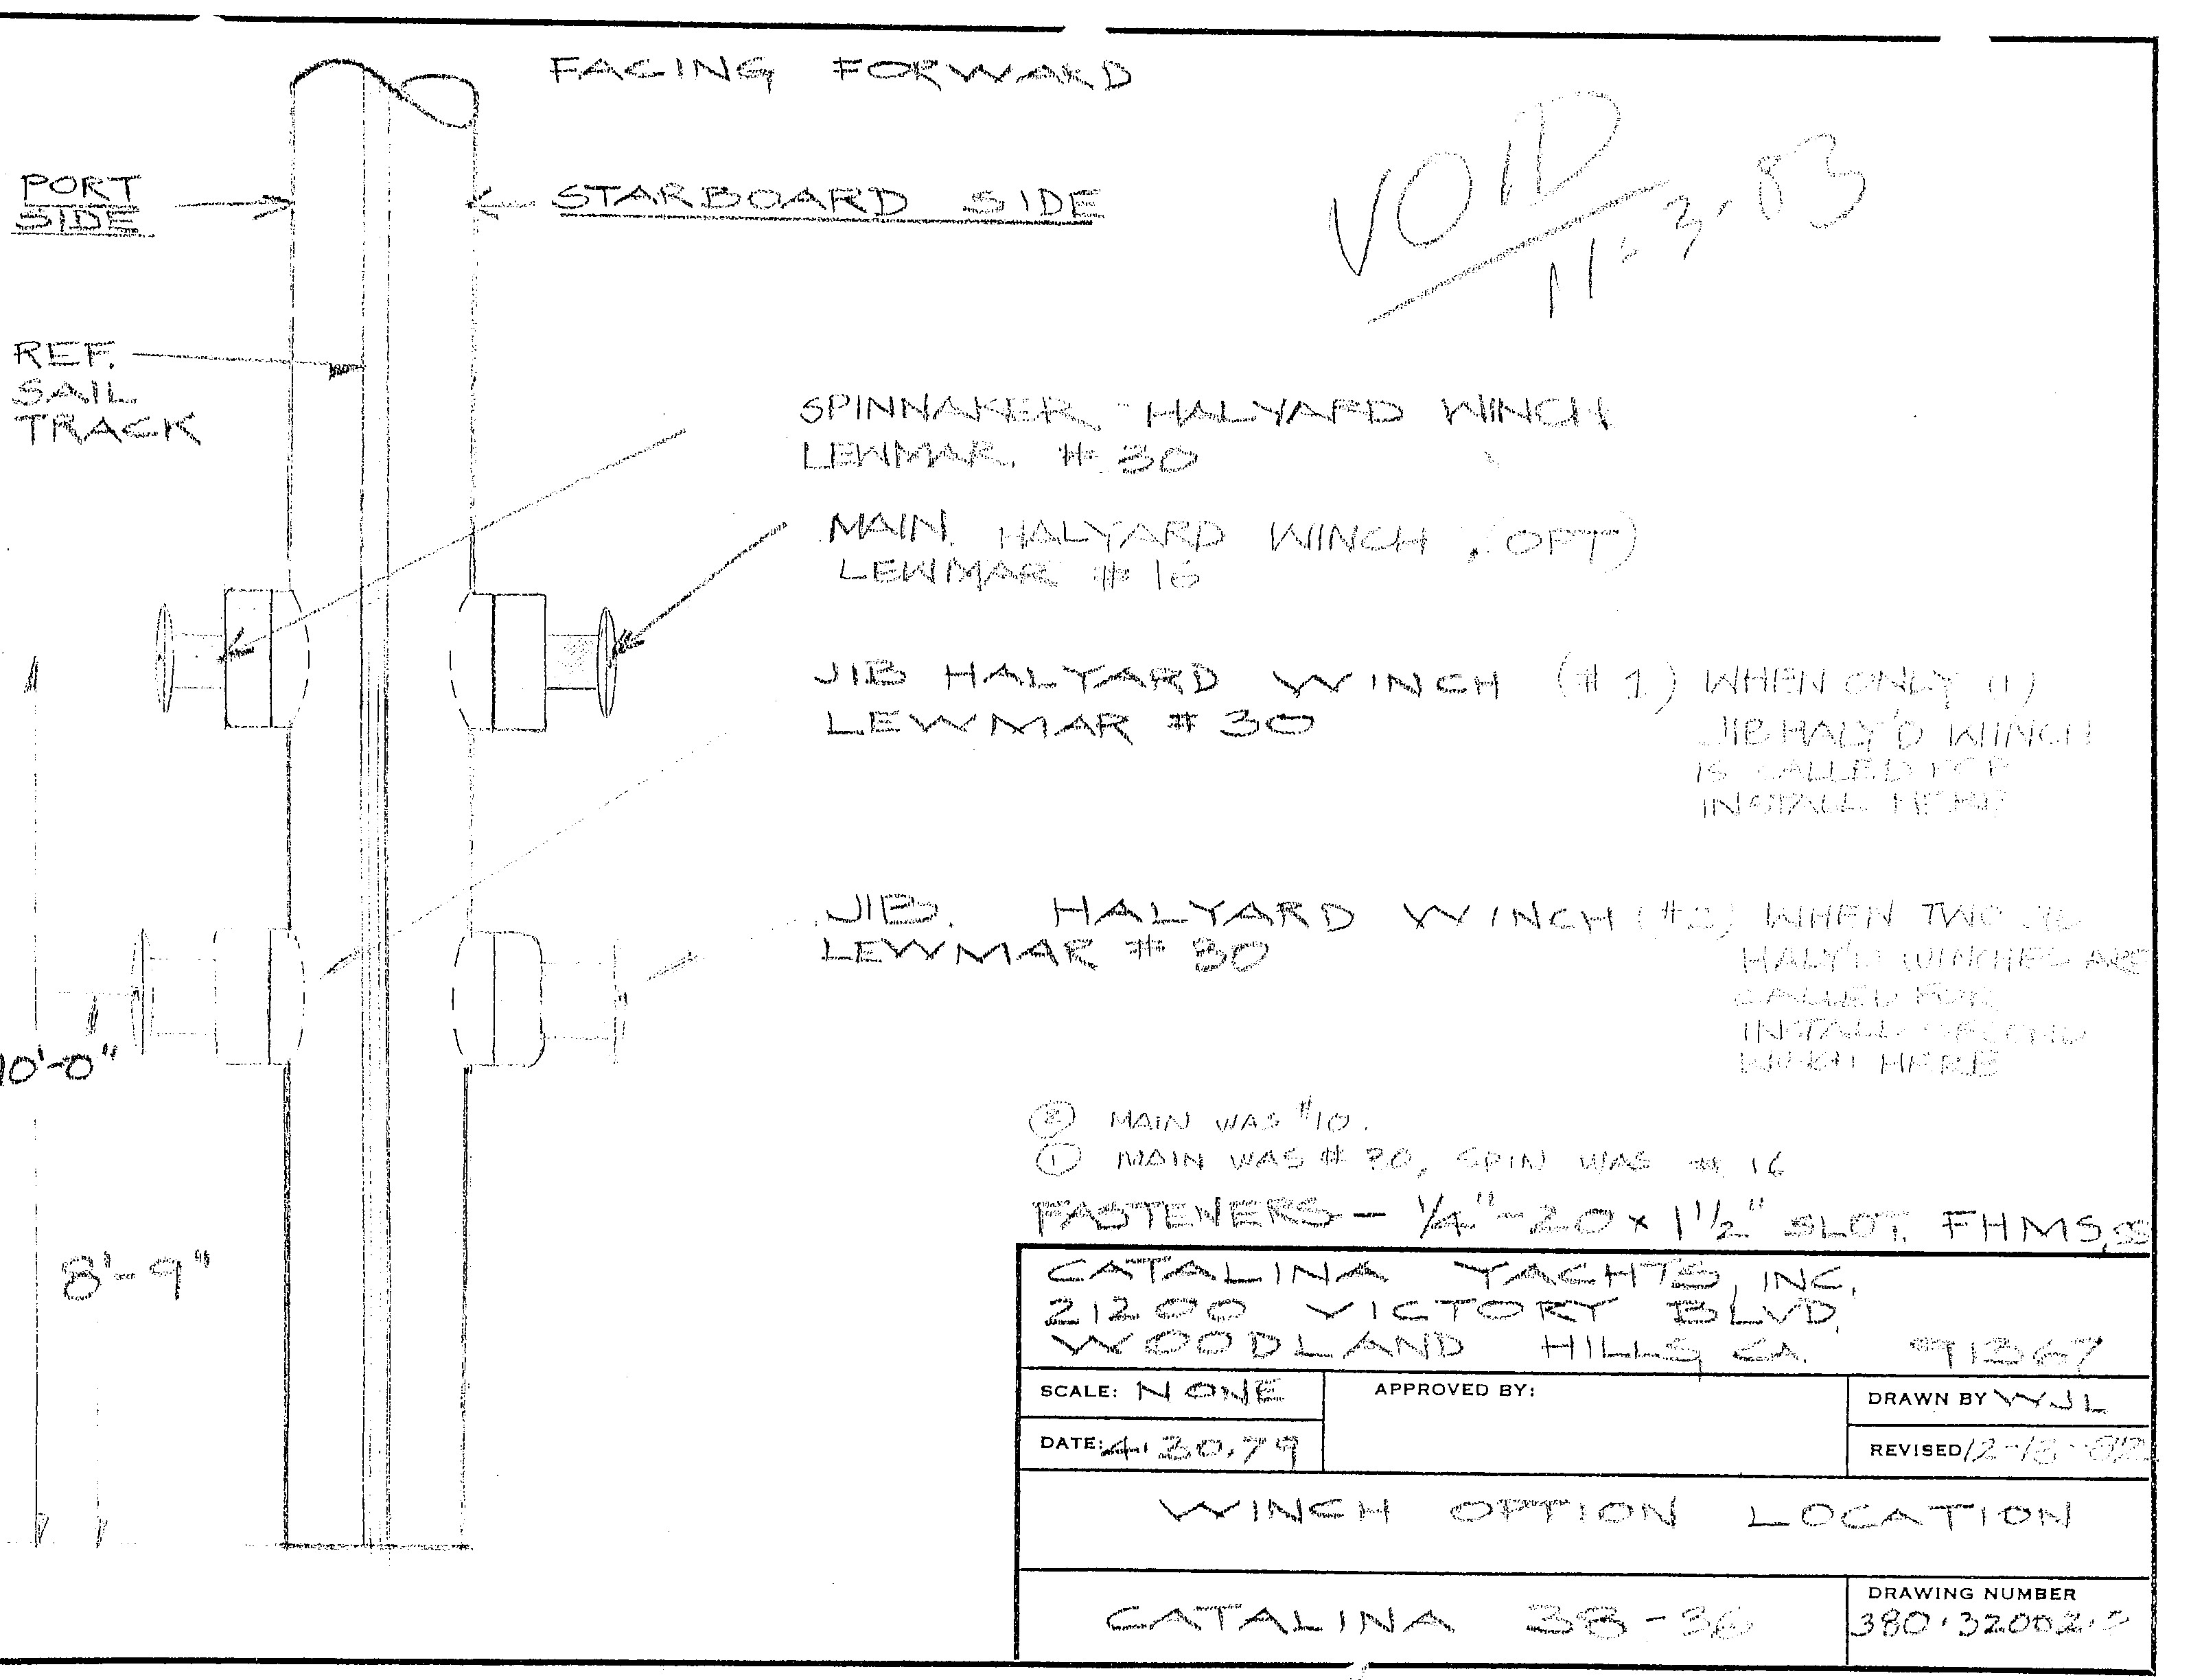 FACING FORWARD
PORT
SIDE
STARBOARD SIDE
VOID
11-3-83
REF.
SAIL
TRACK
SPINNAKER HALYARD WINCH
LEWMAR # 30
MAIN HALYARD WINCH (OPT)
LEWMAR # 16
JIB HALYARD WINCH (#1) WHEN ONLY (1)
LEWMAR # 30
JIB HALY'D WINCH
IS CALLED FOR
INSTALL HERE
JIB. HALYARD WINCH (#2) WHEN TWO
LEWMAR # 30
HALY'D WINCHES ARE
CALLED FOR
INSTALL SECOND
WINCH HERE
10'-0"
8'-9"
② MAIN WAS #10.
① MAIN WAS # 30, SPIN WAS # 16
FASTENERS - 1/4"-20 x 1 1/2" SLOT. FHMS, SS
CATALINA YACHTS, INC.
21200 VICTORY BLVD.
WOODLAND HILLS, CA. 91367
SCALE: NONE
APPROVED BY:
DRAWN BY WJL
DATE: 4.30.79
REVISED 12-13-82
WINCH OPTION LOCATION
CATALINA 38-36
DRAWING NUMBER